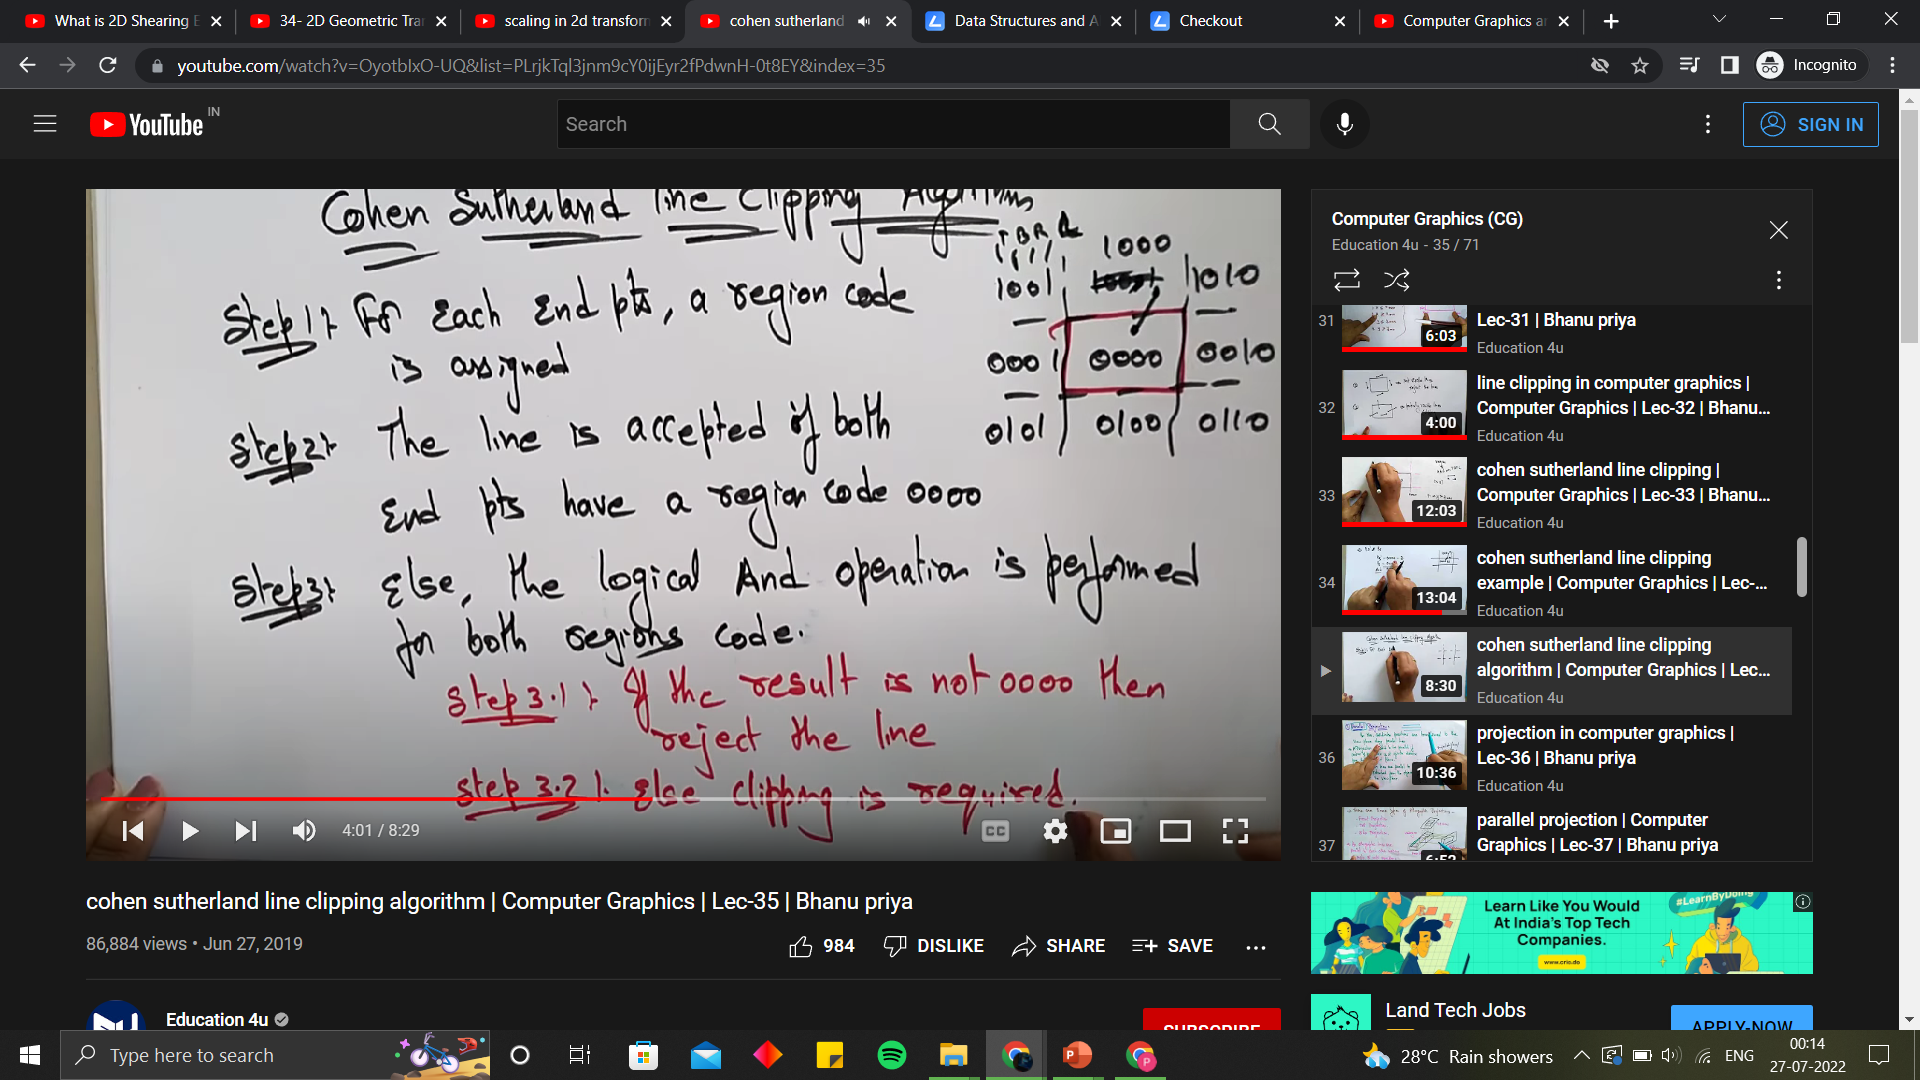 What is 2D Shearing
34- 2D Geometric Tra
scaling in 2d transfor
cohen sutherland
Data Structures and A
Checkout
Computer Graphics a
youtube.com/watch?v=OyotbIxO-UQ&list=PLrjkTql3jnm9cY0ijEyr2fPdwnH-0t8EY&index=35
Incognito
YouTube IN
Search
SIGN IN
Cohen Sutherland line Clipping Algorithm
T B R L
1001 1000 1010
0001 0000 0010
0101 0100 0110
Step1: For Each End pts, a region code
is assigned
Step2: The line is accepted if both
End pts have a region code 0000
Step3: Else, the logical And operation is performed
for both regions code.
Step 3.1: If the result is not 0000 then
reject the line
Step 3.2: Else clipping is required.
4:01 / 8:29
CC
cohen sutherland line clipping algorithm | Computer Graphics | Lec-35 | Bhanu priya
86,884 views • Jun 27, 2019
984
DISLIKE
SHARE
SAVE
Education 4u
SUBSCRIBE
Computer Graphics (CG)
Education 4u - 35 / 71
31
6:03
Lec-31 | Bhanu priya
Education 4u
32
4:00
line clipping in computer graphics |
Computer Graphics | Lec-32 | Bhanu...
Education 4u
33
12:03
cohen sutherland line clipping |
Computer Graphics | Lec-33 | Bhanu...
Education 4u
34
13:04
cohen sutherland line clipping
example | Computer Graphics | Lec-...
Education 4u
8:30
cohen sutherland line clipping
algorithm | Computer Graphics | Lec...
Education 4u
36
10:36
projection in computer graphics |
Lec-36 | Bhanu priya
Education 4u
37
6:52
parallel projection | Computer
Graphics | Lec-37 | Bhanu priya
#LearnByDoing
Learn Like You Would
At India's Top Tech
Companies.
www.crio.do
Land Tech Jobs
APPLY-NOW
Type here to search
28°C Rain showers
ENG
00:14
27-07-2022